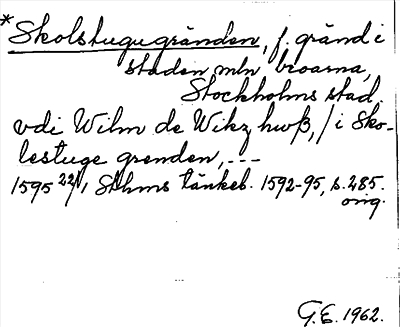 *Skolstugugränden, f. gränd i
staden mln broarna,
Stockholms stad.
vdi Wilm de Wikz hwß, / i Sko-
lestuge grenden, ---
1595 22/1, Sthms tänkeb. 1592-95, s. 285.
orig.
G.E. 1962.